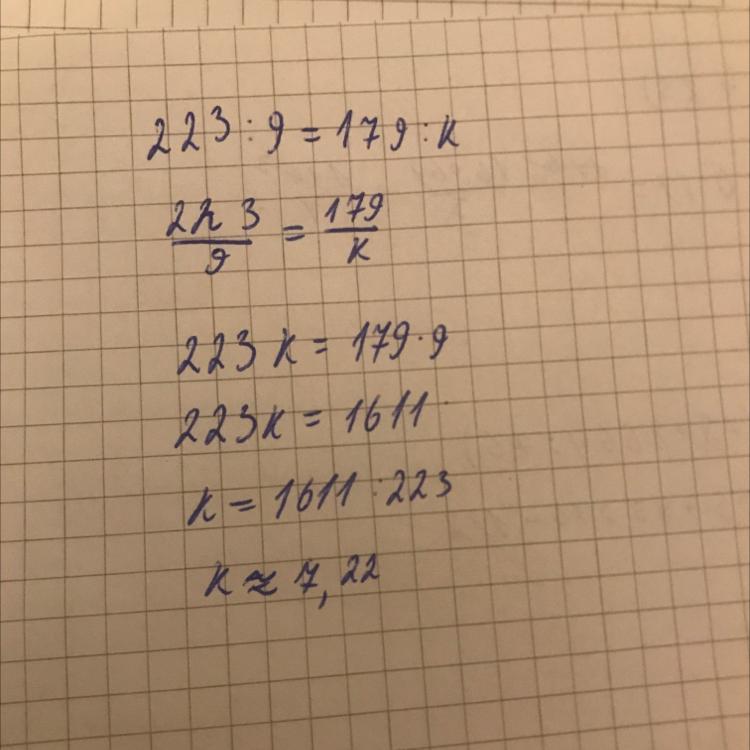 223 : 9 = 179 : к
223/9 = 179/к
223к = 179 · 9
223к = 1611
к = 1611 : 223
к ≈ 7,22